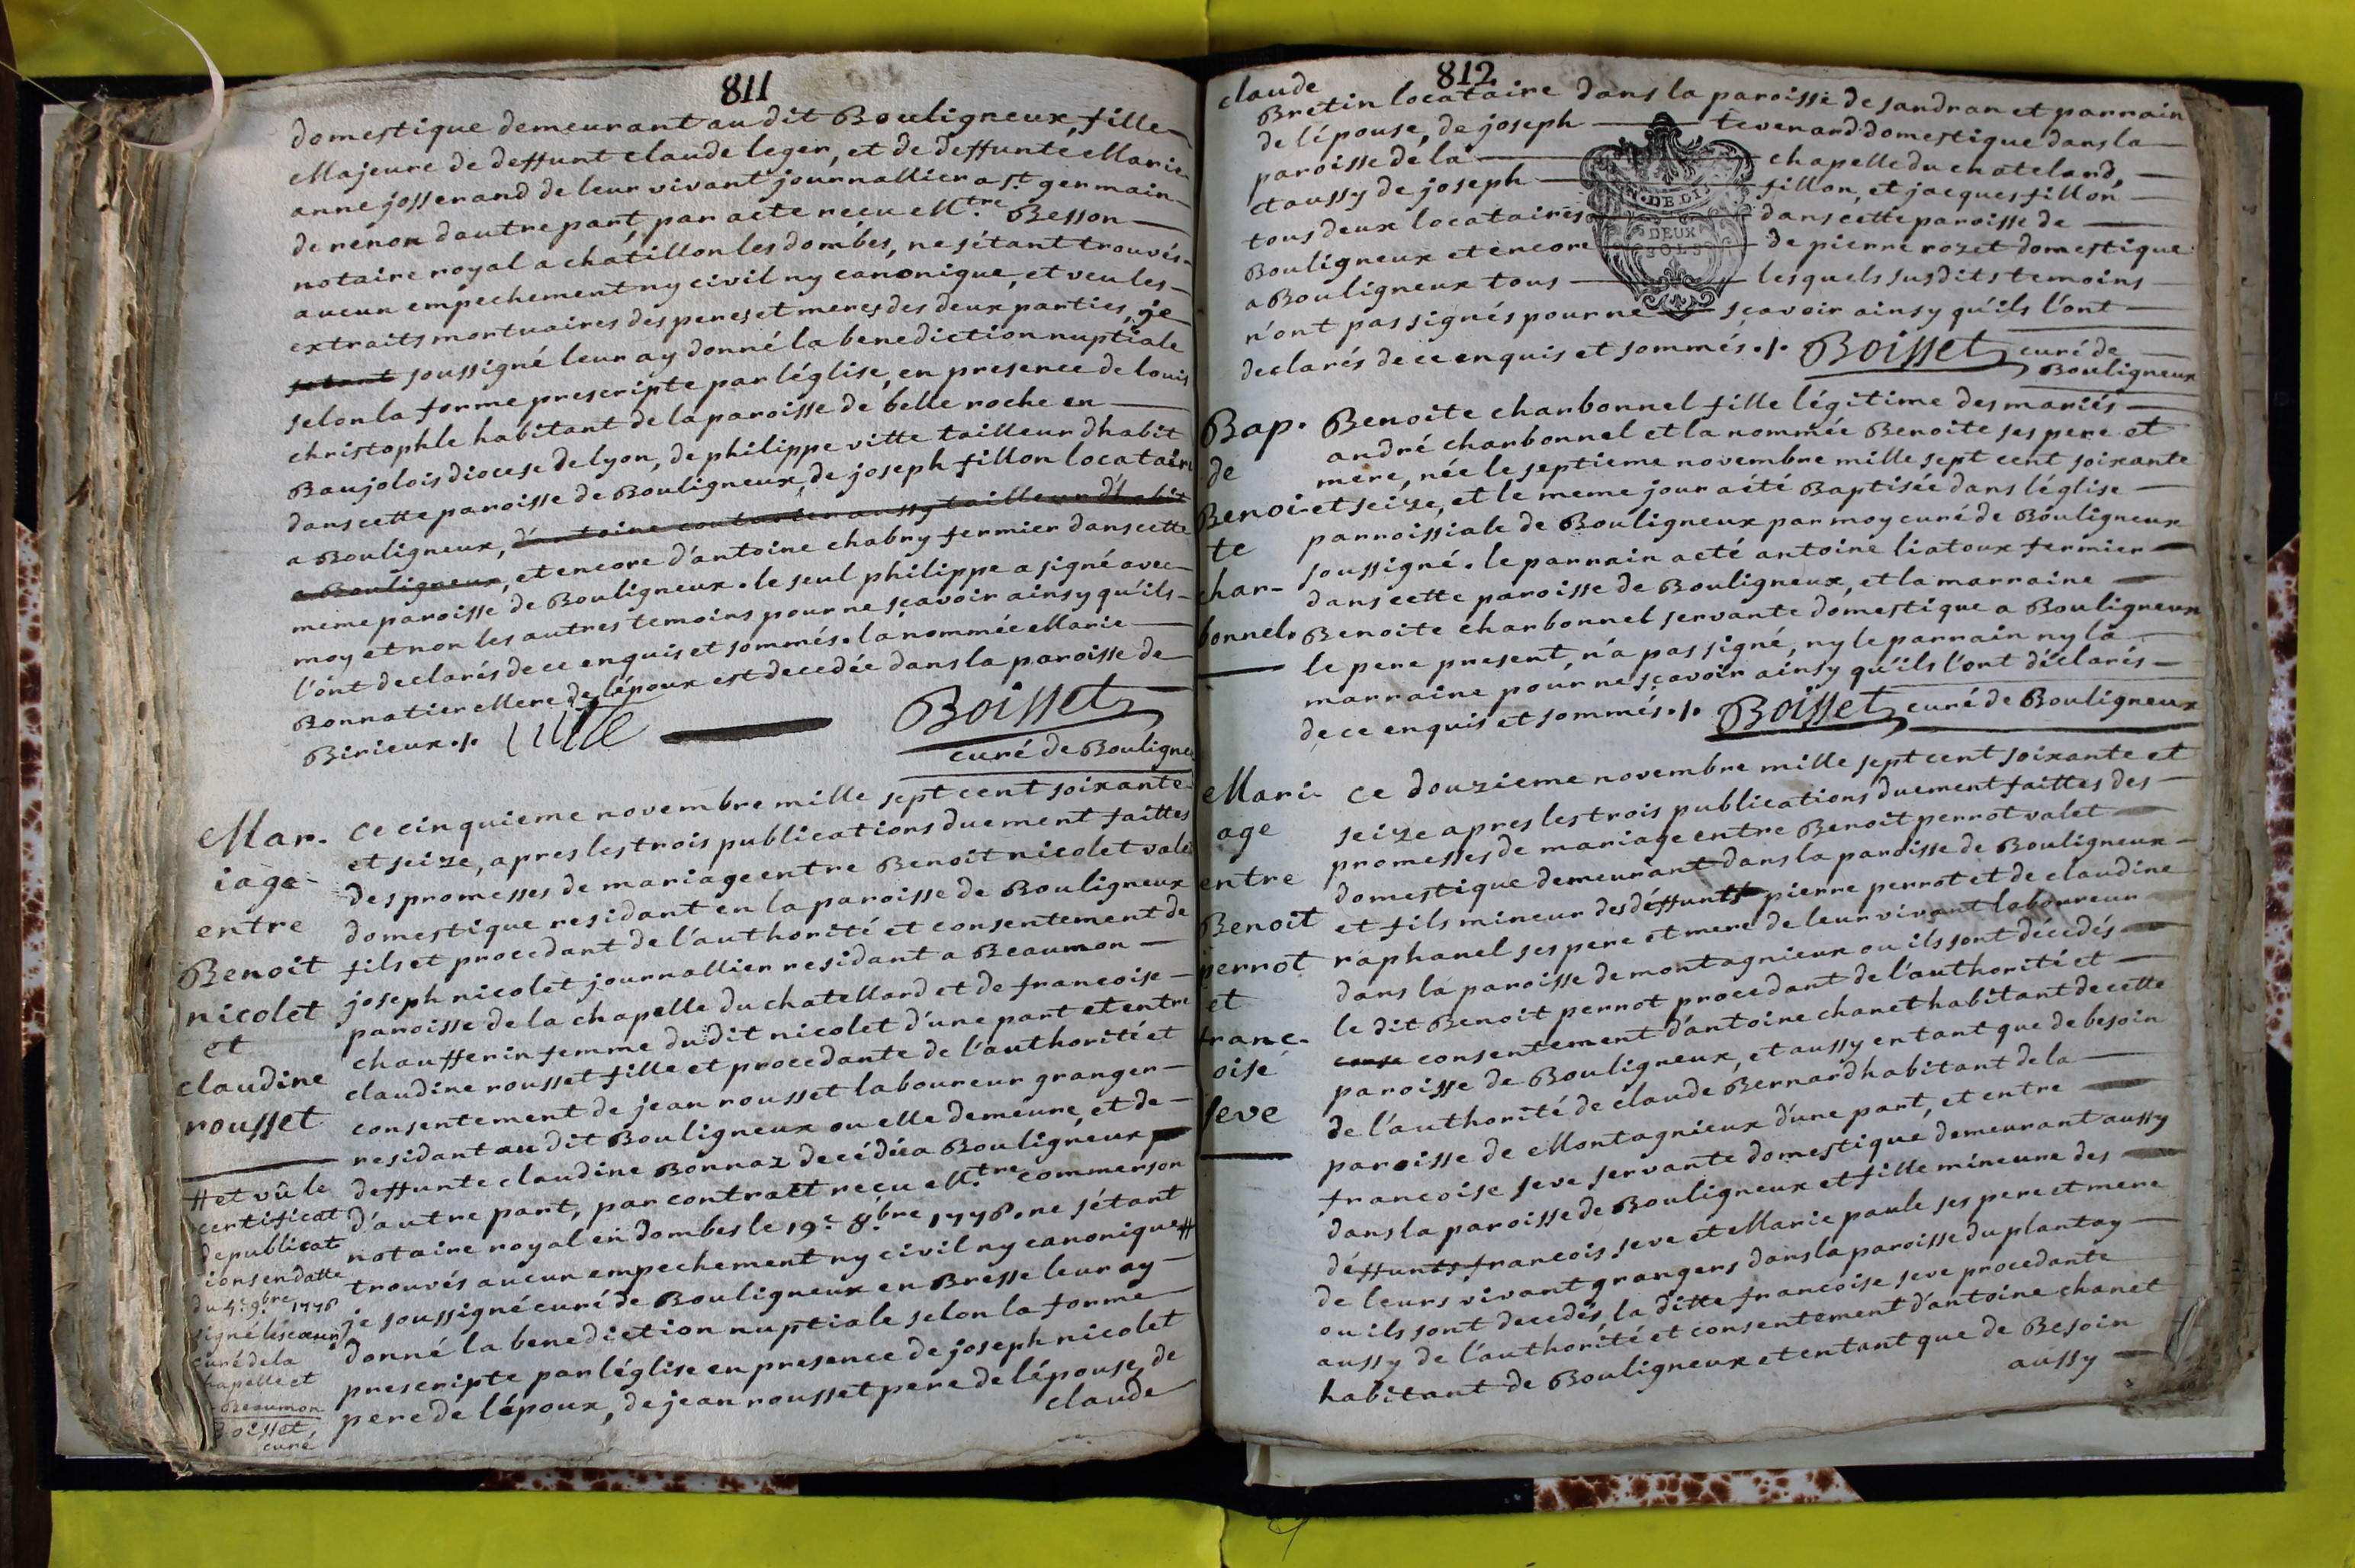 811
domestique demeurant au dit Bouligneux, fille
Majeure de deffunt claude leger, et de deffunte Marie
anne josserand de leur vivant journallier a st. germain
de renon dautre part, par acte reçu Mtre. Besson
notaire royal a châtillon les dombes, ne s'étant trouvés
aucun empechement ny civil ny canonique, et veu les
extraits mortuaires des peres et meres des deux parties, je
soussigné leur ay donné la benediction nuptiale
selon la forme prescripte par léglise, en presence de louis
christophle habitant de la paroisse de belle roche en
Baujolois diocese de lyon, de philippe vitte tailleur dhabit
dans cette paroisse de Bouligneux, de joseph fillon locataire
a Bouligneux, d'antoine couturier aussy tailleur d'habit
a Bouligneux, et encore d'antoine chabry fermier dans cette
meme paroisse de Bouligneux. le seul philippe a signé avec
moy et non les autres temoins pour ne sçavoir ainsy qu'ils
l'ont declarés de ce enquis et sommés. la nommée Marie
Bonnatier Mere de l'époux est decedée dans la paroisse de
Birieux ./. vitte Boisset
curé de Bouligneu
Mar-
iage
entre
Benoit
nicolet
et
claudine
rousset
ce cinquieme novembre mille sept cent soixante
et seize, apres les trois publications duement faittes
des promesses de mariage entre Benoit nicolet vale
domestique residant en la paroisse de Bouligneux
fils et procedant de l'authorité et consentement de
joseph nicolet journallier residant a Beaumon
paroisse de la chapelle du chatellard et de francoise
chaufferin femme du dit nicolet d'une part et entre
claudine rousset fille et procedante de l'authorité et
consentement de jean rousset laboureur granger
residant au dit Bouligneux ou elle demeure, et de
deffunte claudine Bonnaz decédéé a Bouligneux
d'autre part, par contratt recu Mtre. commerson
notaire royal en dombes le 19e. 8bre 1776. ne s'étant
trouvés aucun empechement ny civil ny canonique #
je soussigné curé de Bouligneux en Bresse leur ay
donné la benediction nuptiale selon la forme
prescripte par léglise en presence de joseph nicolet
pere de l'époux, de jean rousset pere de l'épouse, de
claude
# et vû le
certificat
de publicat
ions en datte
du 4e. 9bre 1776
signé
curé de la
chapelle et
Beaumon
Boisset,
curé
812
claude
Bretin locataire dans la paroisse de sandran et parrain
de l'épouse, de joseph tevenard domestique dans la
paroisse de la chapelle du chateland,
et aussy de joseph fillon, et jacques fillon
tous deux locataires dans cette paroisse de
Bouligneux et encore de pierre rozet domestique
a Bouligneux tous lesquels susdits temoins
n'ont pas signés pour ne sçavoir ainsy qu'ils l'ont
declarés de ce enquis et sommés ./. Boisset curé de
Bouligneux
DEUX
SOLS
Bap.
de
Benoi-
te
char-
bonnel.
Benoite charbonnel fille légitime des mariés
andré charbonnel et la nommée Benoite ses pere et
mere, née le septieme novembre mille sept cent soixante
et seize, et le meme jour a été Baptisée dans léglise
parroissiale de Bouligneux par moy curé de Bouligneux
soussigné. le parrain a eté antoine liatoux fermier
dans cette paroisse de Bouligneux, et la marraine
Benoite charbonnel servante domestique a Bouligneux
le pere present, n'a pas signé, ny le parrain ny la
marraine pour ne sçavoir ainsy qu'ils l'ont déclarés
de ce enquis et sommés ./. Boisset curé de Bouligneux
Mari-
age
entre
Benoit
perrot
et
franc-
oise
seve
ce douzieme novembre mille sept cent soixante et
seize apres les trois publications duement faittes des
promesses de mariage entre Benoit perrot valet
domestique demeurant dans la paroisse de Bouligneux
et fils mineur des déffunts pierre perrot et de claudine
raphanel ses pere et mere de leur vivant laboureur
dans la paroisse de montagnieux ou ils sont décédés
le dit Benoit perrot procedant de l'authorité et
conse consentement d'antoine chanet habitant de cette
paroisse de Bouligneux, et aussy en tant que de besoin
de l'authorité de claude Bernard habitant de la
paroisse de Montagnieux d'une part, et entre
francoise seve servante domestique demeurant aussy
dans la paroisse de Bouligneux et fille mineure des
déffunts francois seve et Marie paule ses pere et mere
de leurs vivant grangers dans la paroisse du plantay
ou ils sont decedés, la ditte francoise seve procedante
aussy de l'authorité et consentement d'antoine chanet
habitant de Bouligneux et en tant que de Besoin
aussy